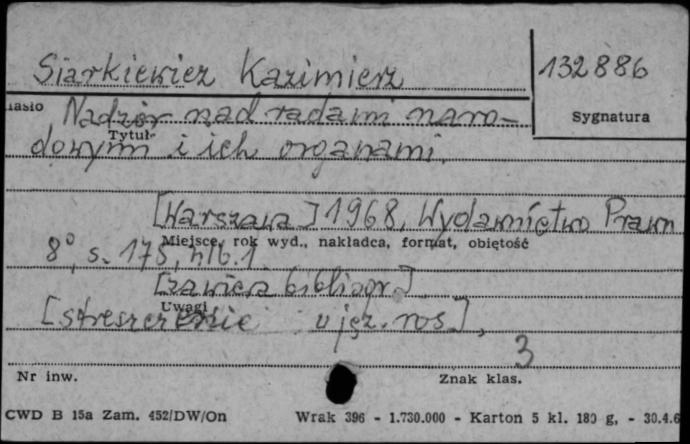 Siarkiewicz Kazimierz
132886
Hasło
Sygnatura
Nadzór nad radami naro-
Tytuł
dowymi i ich organami.
[Warszawa] 1968, Wydawnictwo Prawn
Miejsce, rok wyd., nakładca, format, objętość
8°, s. 175, nlb. 1.
[zawiera bibliogr.]
Uwagi
[streszczenie w jęz. ros],
3
Nr inw.
Znak klas.
CWD B 15a Zam. 452/DW/On
Wrak 396 - 1.730.000 - Karton 5 kl. 180 g, - 30.4.6